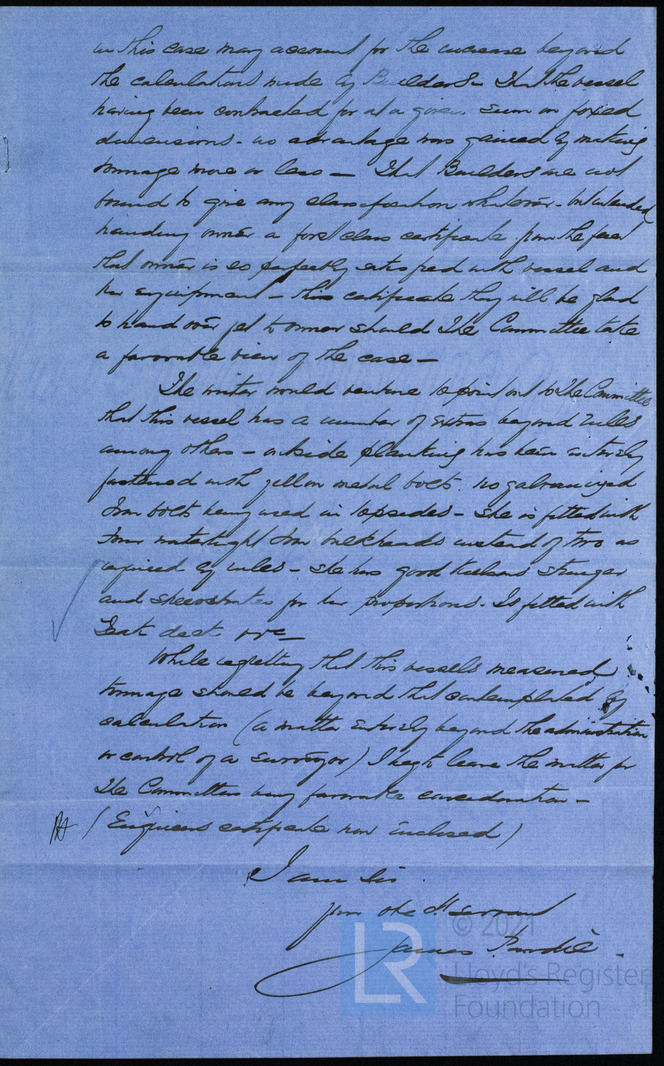 in this case may account for the increase beyond
the calculations made by Builders - That the vessel
having been contracted for at a given sum on fixed
dimensions - no advantage was gained by making
tonnage more or less - That Builders are not
bound to give any classification whatever - but intended
handing owner a first class certificate from the fact
that owner is so perfectly satisfied with vessel and
her equipment - this certificate they will be glad
to hand over yet to owner should The Committee take
a favorable view of the case -
The writer would venture to point out to The Committee
that this vessel has a number of extras beyond rules
among others - outside planking has been entirely
fastened with yellow metal bolts. no galvanized
Iron bolts being used in topsides - She is fitted with
four watertight Iron bulkheads instead of two as
required by rules - She has good Keelsons stringer
and for her proportions. Is fitted with
Teak deck &c
While regretting that this vessels measured
tonnage should be beyond that contemplated by
calculation (a matter entirely beyond the administration
or control of a surveyor) I beg to leave the matter for
The Committees very favorable consideration -
(Engineers certificate now inclosed)
I am Sir
your obedt servant
James
© 2021
LR
Lloyd's Register
Foundation